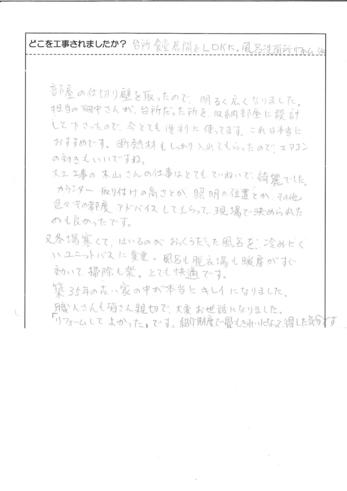 どこを工事されましたか? 台所 食堂 居間をLDKに。風呂 洗面所リフォーム
部屋の仕切り壁を取ったので、明るく広くなりました。
担当の畑中さんが、台所だった所を、収納部屋に設計
して下さったので、今とても便利に使ってます。これは本当に
おすすめです。断熱材もしっかり入れてもらったので、エアコン
の効きもいいですね。
大工工事の木山さんの仕事はとてもていねいで、綺麗でした。
カウンター取り付けの高さとか、照明の位置とか、その他
色々その都度アドバイスしてもらって、現場で決められた
のも良かったです。
又冬場寒くて、はいるのがおっくうだった風呂を、冷めにく
いユニットバスに変更。風呂も脱衣場も暖房がすぐ
効いて掃除も楽。とても快適です。
築35年の古い家の中が本当にキレイになりました。
職人さんも皆さん親切で、大変お世話になりました。
「リフォームしてよかった」です。紹介制度で畳もきれいになって得した気分です